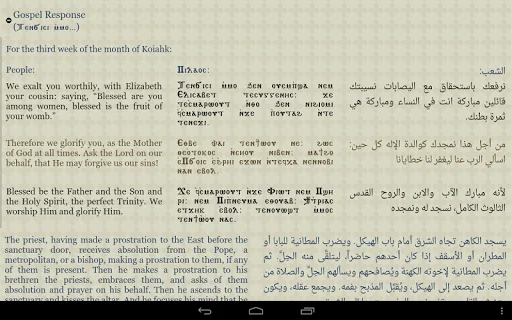 Gospel Response
(Ⲧⲉⲛϭⲓⲥⲓ ⲙⲙⲟ...)
For the third week of the month of Koiahk:
People:
We exalt you worthily, with Elizabeth
your cousin: saying, "Blessed are you
among women, blessed is the fruit of
your womb."
Ⲡⲓⲗⲁⲟⲥ:
Ⲧⲉⲛϭⲓⲥⲓ ⲙⲙⲟ ϧⲉⲛ ⲟⲩⲉⲙⲡϣⲁ ⲛⲉⲙ
Ⲉⲗⲓⲥⲁⲃⲉⲧ ⲧⲉⲥⲩⲅⲅⲉⲛⲏⲥ: ϫⲉ
ⲧⲉⲥⲙⲁⲣⲱⲟⲩⲧ ⲛⲑⲟ ϧⲉⲛ ⲛⲓϩⲓⲟⲙⲓ
ϥⲥⲙⲁⲣⲱⲟⲩⲧ ⲛϫⲉ ⲡⲟⲩⲧⲁϩ ⲛⲧⲉ
ⲧⲉⲛⲉϫⲓ.
الشعب:
نرفعك باستحقاق مع اليصابات نسيبتك
قائلين مباركة انت في النساء ومباركة هي
ثمرة بطنك.
Therefore we glorify you, as the Mother
of God at all times. Ask the Lord on our
behalf, that He may forgive us our sins!
Ⲉⲑⲃⲉ ⲫⲁⲓ ⲧⲉⲛϯⲱⲟⲩ ⲛⲉ: ϩⲱⲥ
ⲑⲉⲟⲧⲟⲕⲟⲥ ⲛⲥⲏⲟⲩ ⲛⲓⲃⲉⲛ: ⲙⲁϯϩⲟ
ⲉⲠϭⲟⲓⲥ ⲉϩⲣⲏⲓ ⲉϫⲱⲛ ⲛⲧⲉϥⲭⲁ ⲛⲉⲛⲛⲟⲃⲓ
ⲛⲁⲛ ⲉⲃⲟⲗ
من أجل هذا نمجدك كوالدة الإله كل حين:
اسألي الرب عنا ليغفر لنا خطايانا
Blessed be the Father and the Son and
the Holy Spirit, the perfect Trinity. We
worship Him and glorify Him.
Ϫⲉ ϥⲥⲙⲁⲣⲱⲟⲩⲧ ⲛϫⲉ Ⲫⲓⲱⲧ ⲛⲉⲙ Ⲡϣⲏ-
ⲣⲓ: ⲛⲉⲙ Ⲡⲓⲡⲛⲉⲩⲙⲁ ⲉⲑⲟⲩⲁⲃ: Ϯⲧⲣⲓⲁⲥ
ⲉⲧϫⲏⲕ ⲉⲃⲟⲗ: ⲧⲉⲛⲟⲩⲱϣⲧ ⲙⲙⲟⲥ
ⲧⲉⲛϯⲱⲟⲩ ⲛⲁⲥ.
لأنه مبارك الآب والابن والروح القدس
الثالوث الكامل، نسجد له ونمجده
The priest, having made a prostration to the East before the
sanctuary door, receives absolution from the Pope, a
metropolitan, or a bishop, making a prostration to them, if any
of them is present. Then he makes a prostration to his
brethren the priests, embraces them, and asks of them
absolution and prayer on his behalf. Then he ascends to the
sanctuary and kisses the altar. And he focuses his mind that he
يسجد الكاهن تجاه الشرق أمام باب الهيكل. ويضرب المطانية للبابا أو
المطران أو الأسقف إذا كان أحدهم حاضراً، ليتلقَّى منه الحِلَّ. ثم
يضرب المطانية لإخوته الكهنة ويُصافحهم ويسألهم الحِلَّ والصلاة من
أجله. ثم يصعد إلى الهيكل، ويُقبِّل المذبح بفمه. ويجمع عقله، ويكون